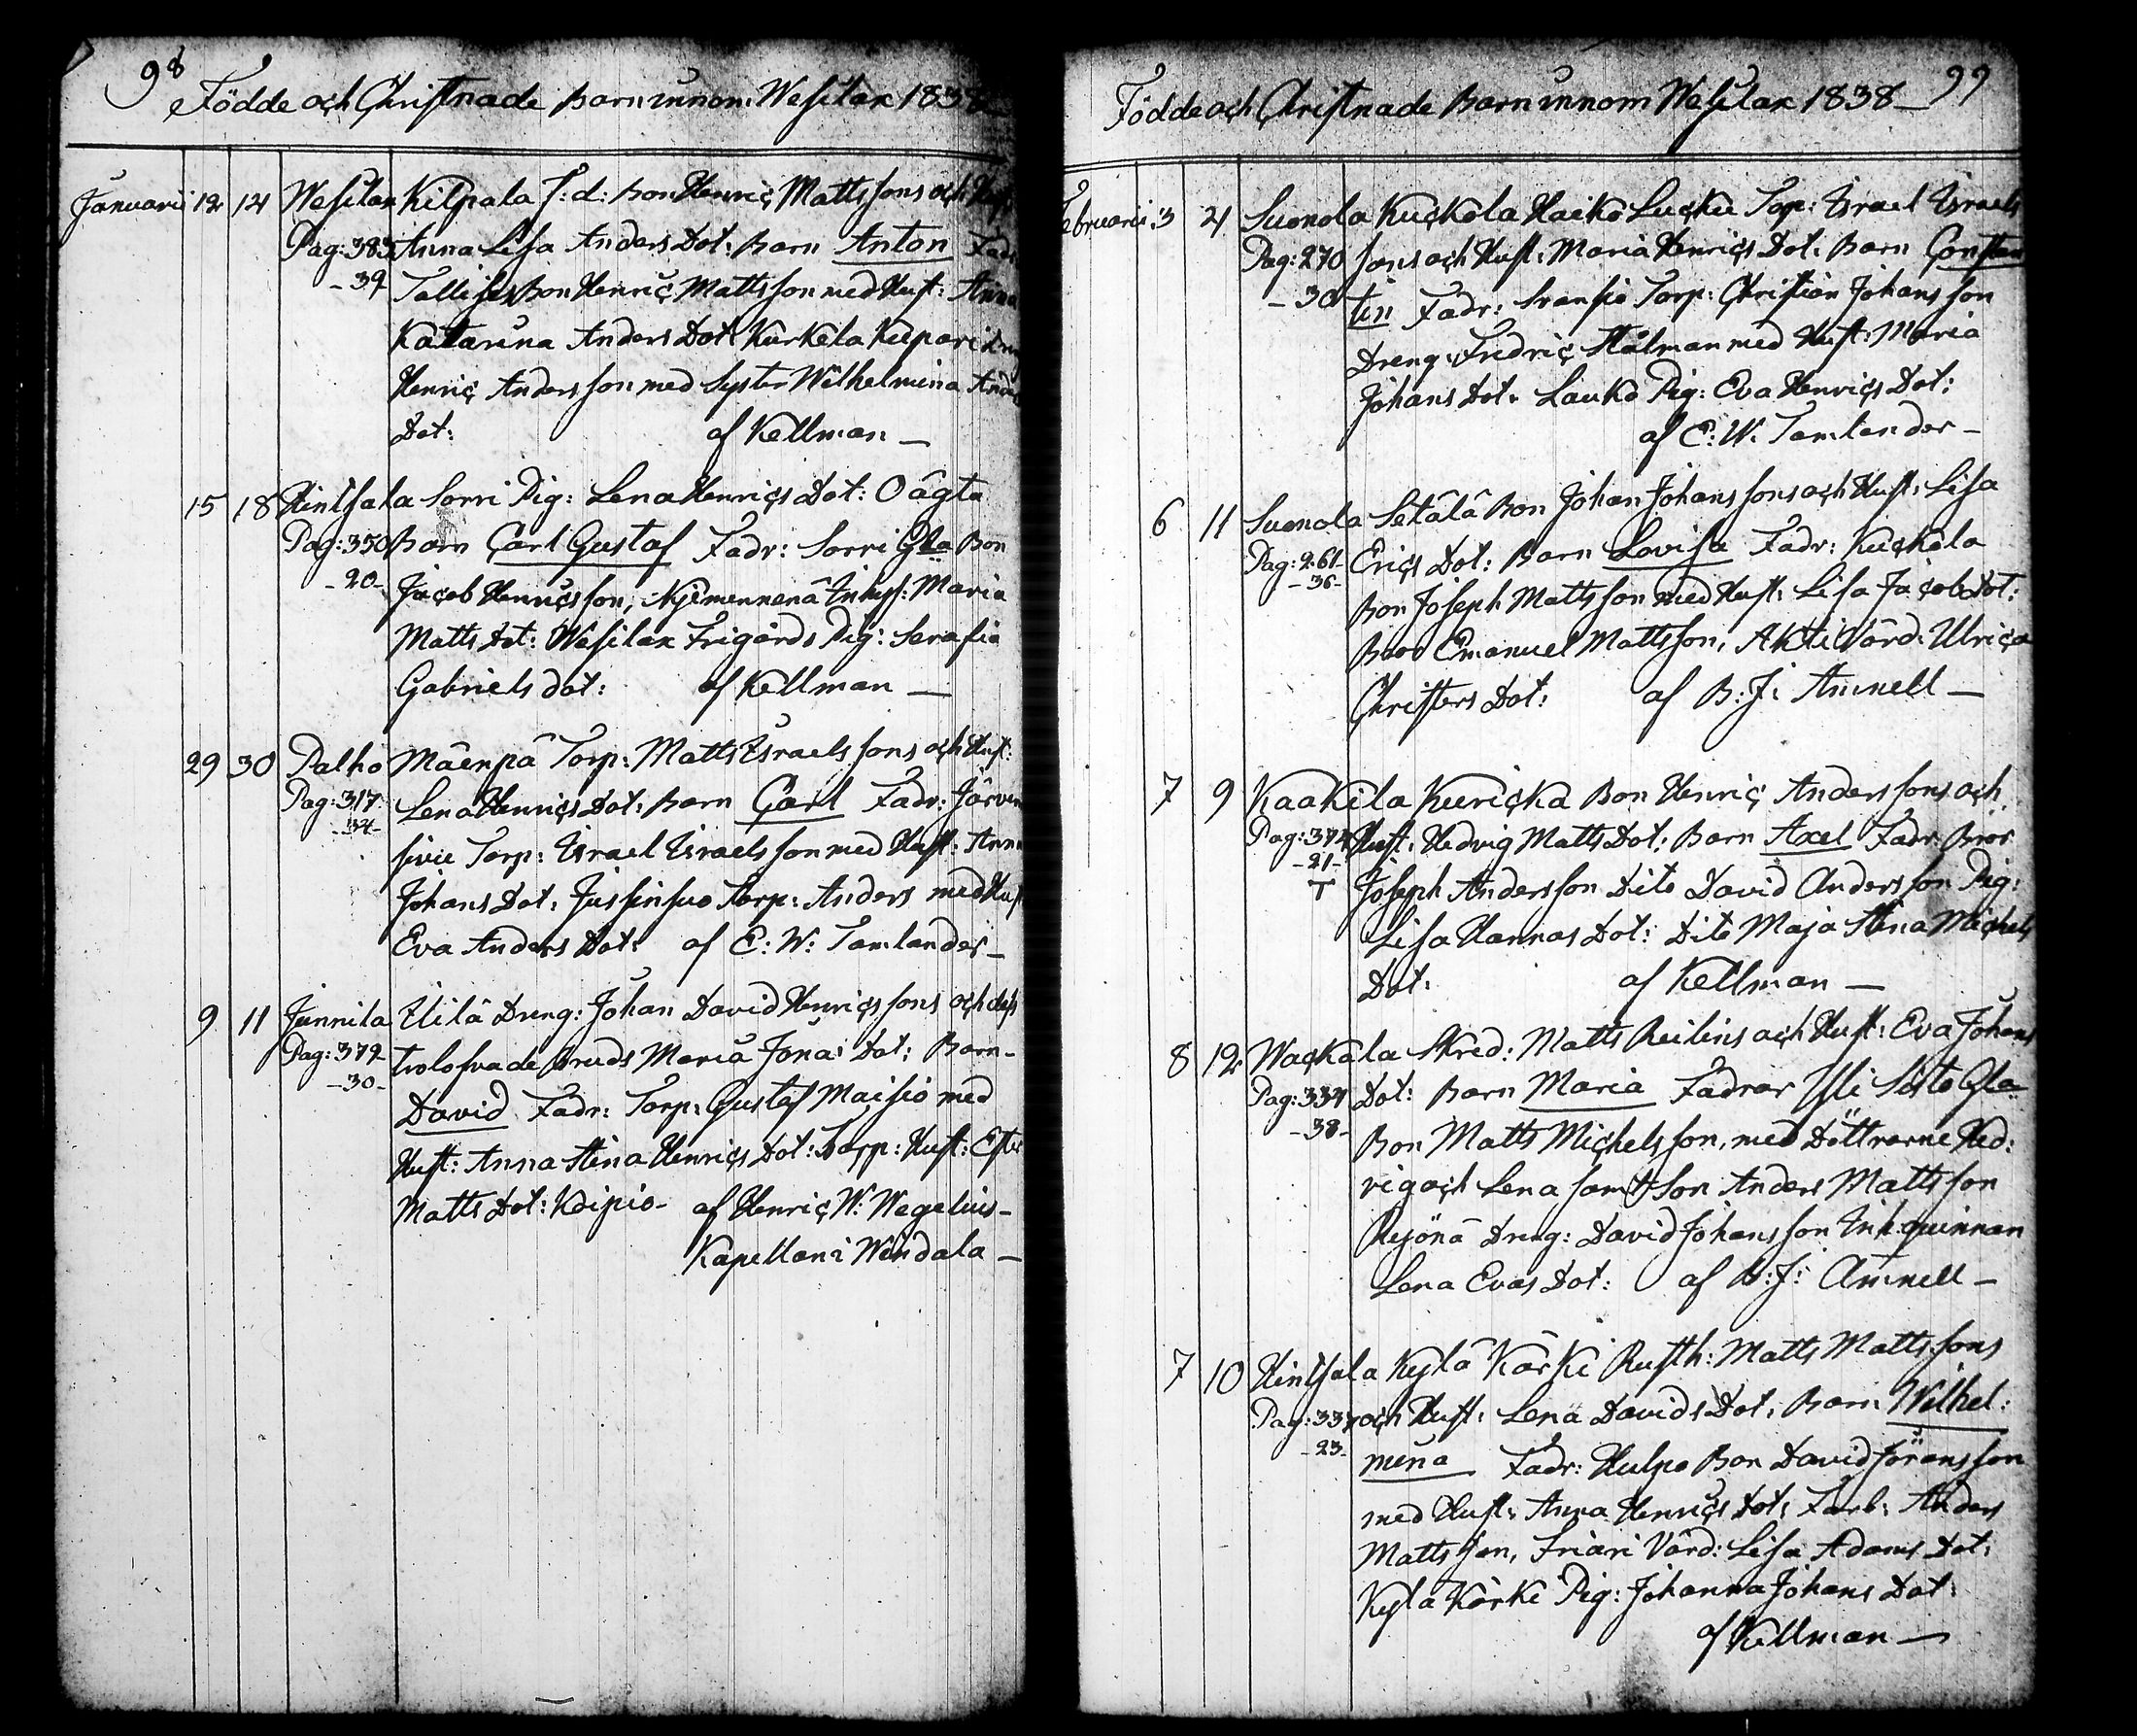 98
Födde och Christnade Barn innom Wesilax 1838
Januarii 12 14 Wesilax Kilpala f: d: Bon Henric Mattssons och Hust
Pag: 383 Anna Lisa Anders Dot: Barn Anton Fadr
-39 Bon Henric Mattsson med Hust: Anna
Katarina Anders Dot: Kurkela
Henric Andersson med Syster Wilhelmina Anders
Dot: af Kellman —
15 18 Hinsala Sorri Pig: Lena Henrics Dot: Oägta
Pag: 350 Barn Carl Gustaf Fadr: Sorri Gla Bon
-20- Jacob Henricsson, Inhys: Maria
Matts Dot: Wesilax Frigårds Pig: Serafia
Gabriels dot: af Kellman —
29 30 Palho Mäenpä Torp: Matts Israelssons och Hust:
Pag: 317 Lena Henrics Dot: Barn Carl Fadr: Järven
-34- sivu Torp: Israel Israelsson med Hust: Anna
Johans Dot: Jussinsuo Torp: Anders med Hust
Eva Anders Dot: af E: W: Tamlander —
9 11 Junnila Ylilä Dreng: Johan David Henricssons och dess
Pag: 372 trolofvade Bruds Maria Jonas Dot: Barn
-30- David Fadr: Torp: Gustaf Maisio med
Hust: Anna Stina Henrics Dot: Torp: Hust: Ester
Matts Dot: Koipio - af Henric W: Wegelius -
Kapellan i Wirdala —
Födde och Christnade Barn innom Wesilax 1838 — 99
Februarii 3 4 Suonola Kuckola Haiko Lucku Torp: Israel Israels
Pag: 270 sons och Hust: Maria Henrics Dot: Barn Constan
-30 tin Fadr: Torp: Christian Johansson
Dreng: Fredric Stålman med Hust: Maria
Johans Dot: Lauko Pig: Eva Henrics Dot:
af E: W: Tamlander —
6 11 Suonola Setälä Bon Johan Johanssons och Hust: Lisa
Pag: 261 Erics Dot: Barn Lovisa Fadr: Kuckola
-36- Bon Joseph Mattsson med Hust: Lisa Jacobs Dot:
Bror Emanuel Mattsson, Akti Värd: Ulrica
Christers Dot: af B: J: Amnell —
7 9 Kaakila Kuricka Bon Henric Anderssons och
Pag: 374 Hust: Hedvig Matts Dot: Barn Axel Fadr: Bror
-21- Joseph Andersson Dito David Andersson Pig:
T Lisa Hannas Dot: Dito Maja Stina Michels
Dot: af Kellman —
8 12 Wackala Skred: Matts Reilins och Hust: Eva Johans
Pag: 334 Dot: Barn Maria Fadrar Yli Sisto Gla
-38- Bon Matts Michelsson, med Döttrarne Hed:
vig och Lena samt Son Anders Mattsson
Rejönä Dreng: David Johansson Inh. quinnan
Lena Evas Dot: af B: J: Amnell —
7 10 Hinsala Kylä Kärki Rusth: Matts Mattssons
Pag: 337 och Hust: Lena Davids Dot: Barn Wilhel:
-23- mina Fadr: Hulpo Bon David Jöransson
med Hust: Anna Henrics Dot: Farb: Anders
Mattsson, Friari Värd: Lisa Adams Dot:
Kylä Kärki Pig: Johanna Johans Dot:
af Kellman —